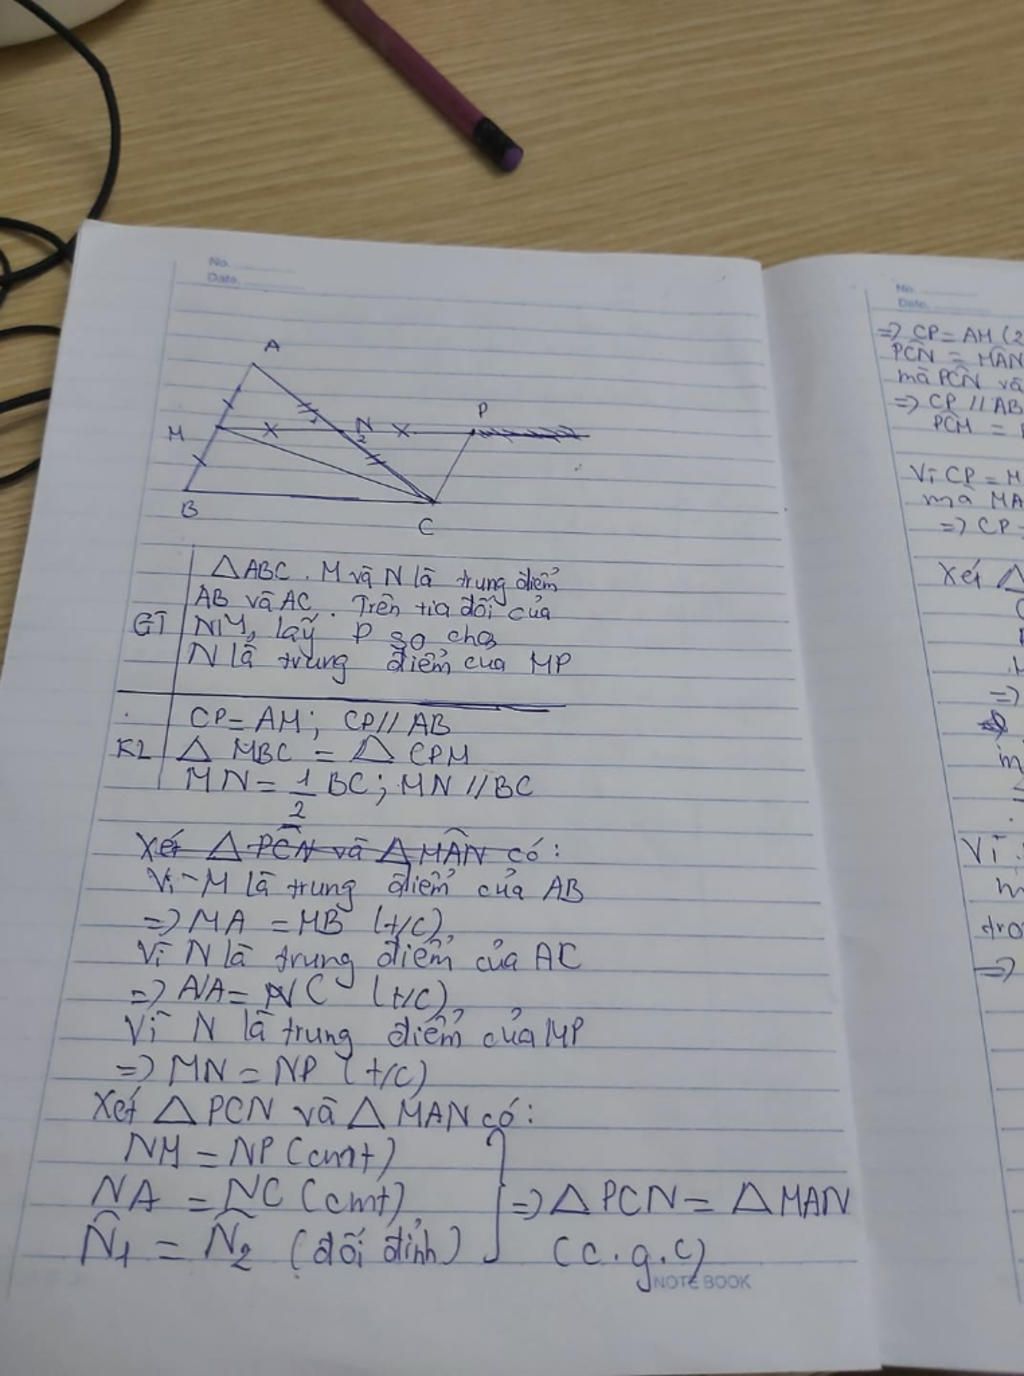 No.
Date.
A
M
N
2
P
B
C
△ABC. M và N là trung điểm
AB và AC. Trên tia đối của
GT NM, lấy P sao cho
N là trung điểm của MP
CP = AM; CP // AB
KL △ MBC = △ CPM
MN = 1/2 BC; MN // BC
Xét △ PCN và △ MAN có:
Vì M là trung điểm của AB
=> MA = MB (t/c)
Vì N là trung điểm của AC
=> NA = NC (t/c)
Vì N là trung điểm của MP
=> MN = NP (t/c)
Xét △ PCN và △ MAN có:
NM = NP (cmt)
NA = NC (cmt)
=> △ PCN = △ MAN
N̂1 = N̂2 (đối đỉnh)
(c.g.c)
NOTE BOOK
No.
Date.
=> CP = AM (2
PĈN = MÂN
mà PĈN và
=> CP // AB
PĈM =
Vì CP = M
mà MA
=> CP =
Xét △
=>
Vì
=>